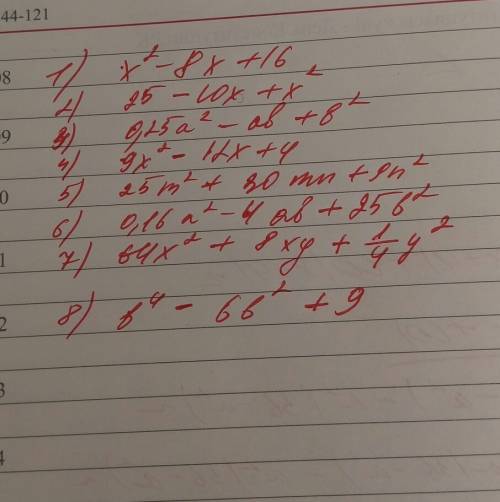 44-121
08
1) x² - 8x + 16
2) 25 - 10x + x²
09
3) 0,25a² - ab + b²
4) 9x² - 12x + 4
0
5) 25m² + 30mn + 9n²
6) 0,16a² - 4ab + 25b²
1
7) 64x² + 8xy + 1/4 y²
2
8) b⁴ - 6b² + 9
3
4